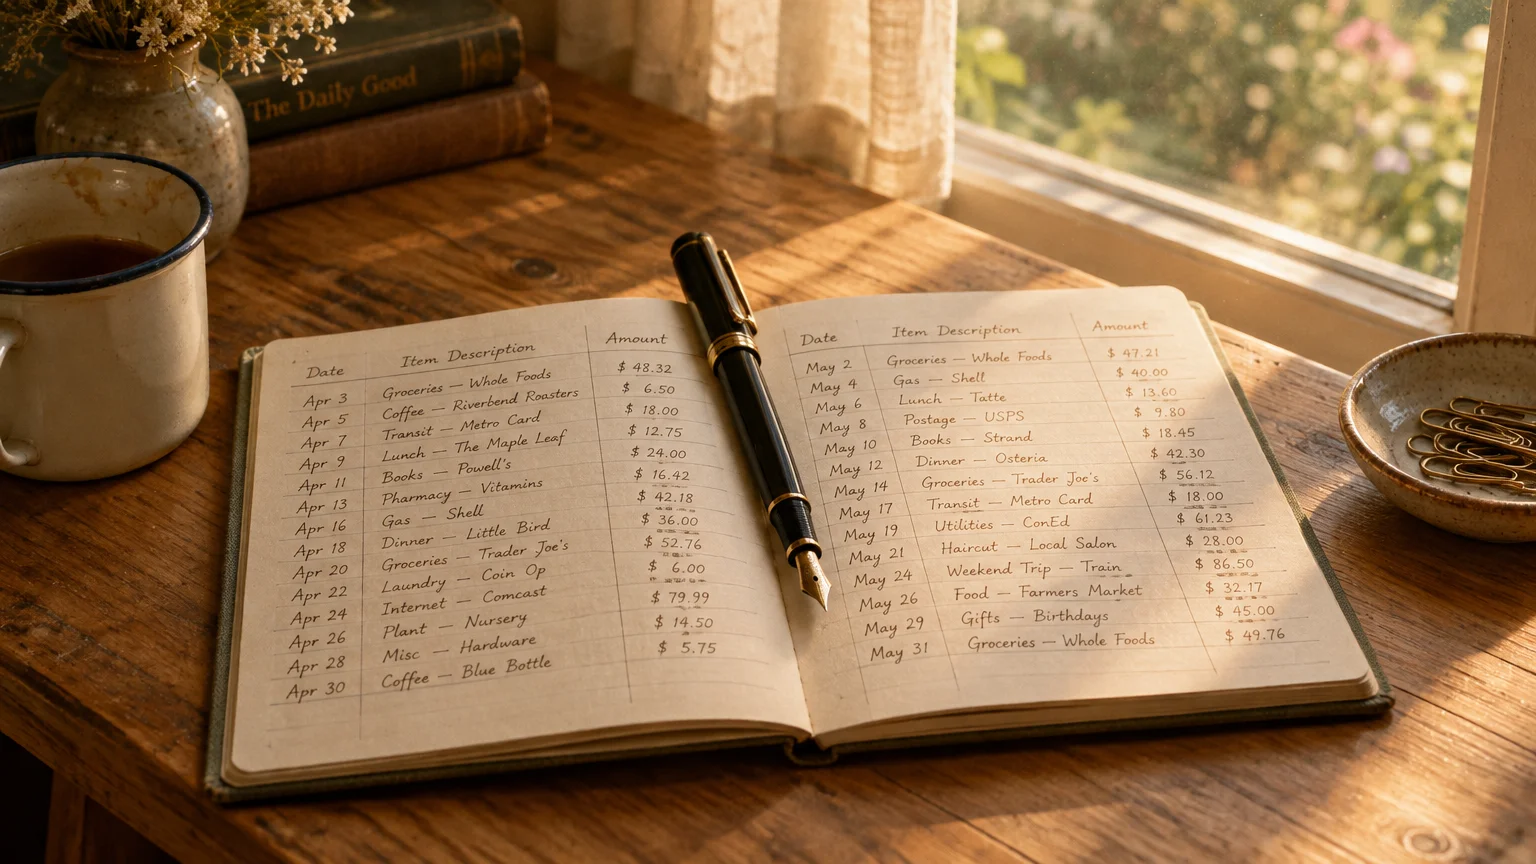 The Daily Good
Date Item Description Amount
Apr 3 Groceries — Whole Foods $ 48.32
Apr 5 Coffee — Riverbend Roasters $ 6.50
Apr 7 Transit — Metro Card $ 18.00
Apr 9 Lunch — The Maple Leaf $ 12.75
Apr 11 Books — Powell's $ 24.00
Apr 13 Pharmacy — Vitamins $ 16.42
Apr 16 Gas — Shell $ 42.18
Apr 18 Dinner — Little Bird $ 36.00
Apr 20 Groceries — Trader Joe's $ 52.76
Apr 22 Laundry — Coin Op $ 6.00
Apr 24 Internet — Comcast $ 79.99
Apr 26 Plant — Nursery $ 14.50
Apr 28 Misc — Hardware $ 5.75
Apr 30 Coffee — Blue Bottle
Date Item Description Amount
May 2 Groceries — Whole Foods $ 47.21
May 4 Gas — Shell $ 40.00
May 6 Lunch — Tatte $ 13.60
May 8 Postage — USPS $ 9.80
May 10 Books — Strand $ 18.45
May 12 Dinner — Osteria $ 42.30
May 14 Groceries — Trader Joe's $ 56.12
May 17 Transit — Metro Card $ 18.00
May 19 Utilities — ConEd $ 61.23
May 21 Haircut — Local Salon $ 28.00
May 24 Weekend Trip — Train $ 86.50
May 26 Food — Farmers Market $ 32.17
May 29 Gifts — Birthdays $ 45.00
May 31 Groceries — Whole Foods $ 49.76